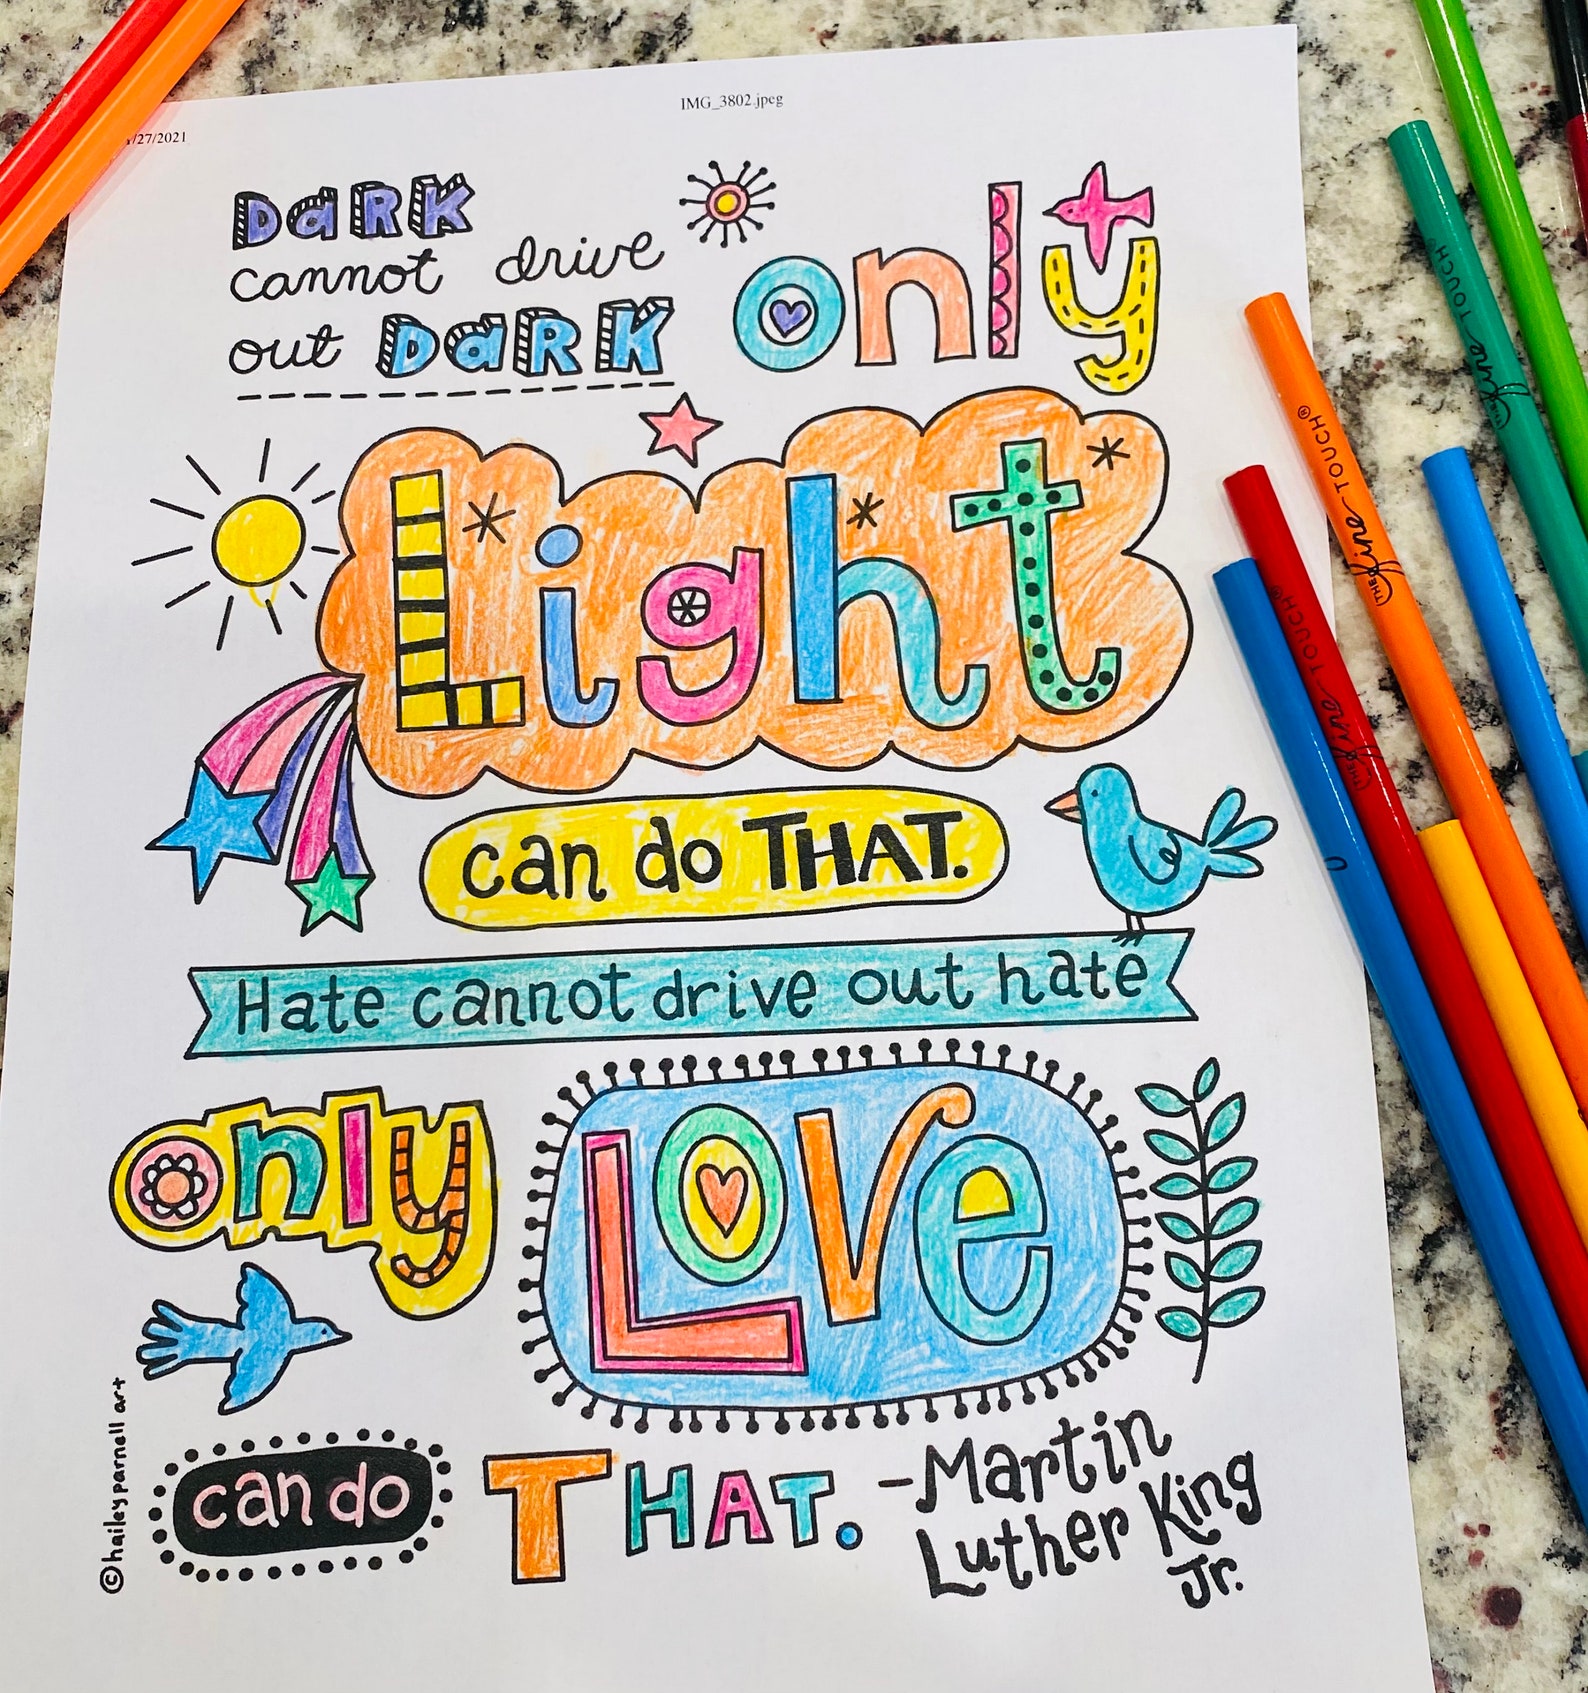 IMG_3802.jpeg
/27/2021
DaRK
cannot drive
out DaRK
only
Light
can do THAT.
Hate cannot drive out hate
only
LOVe
can do
THAT.
-Martin
Luther King
Jr.
©haileyparnell art
THE fine TOUCH®
THE fine TOUCH
THE fine TOUCH®